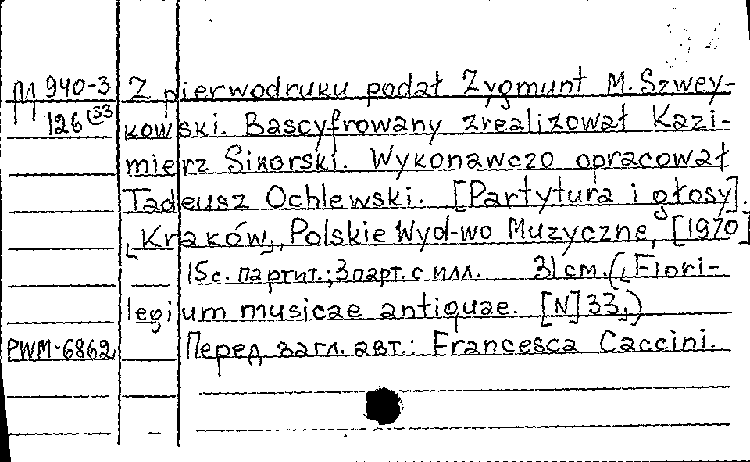 М 940-3 Z pierwodruku podał Zygmunt M. Szwey-
126 (33 kowski. Bascyfrowany zrealizował Kazi-
mierz Sikorski. Wykonawczo opracował
Tadeusz Ochlewski. [Partytura i głosy].
„Kraków„, Polskie Wyd-wo Muzyczne, [1970]
15 с. партит.; 3 парт. с илл. 31 см. („Flori-
legium musicae antiquae. [N] 33„)
PWM-6862, Перед загл. авт.: Francesca Caccini.